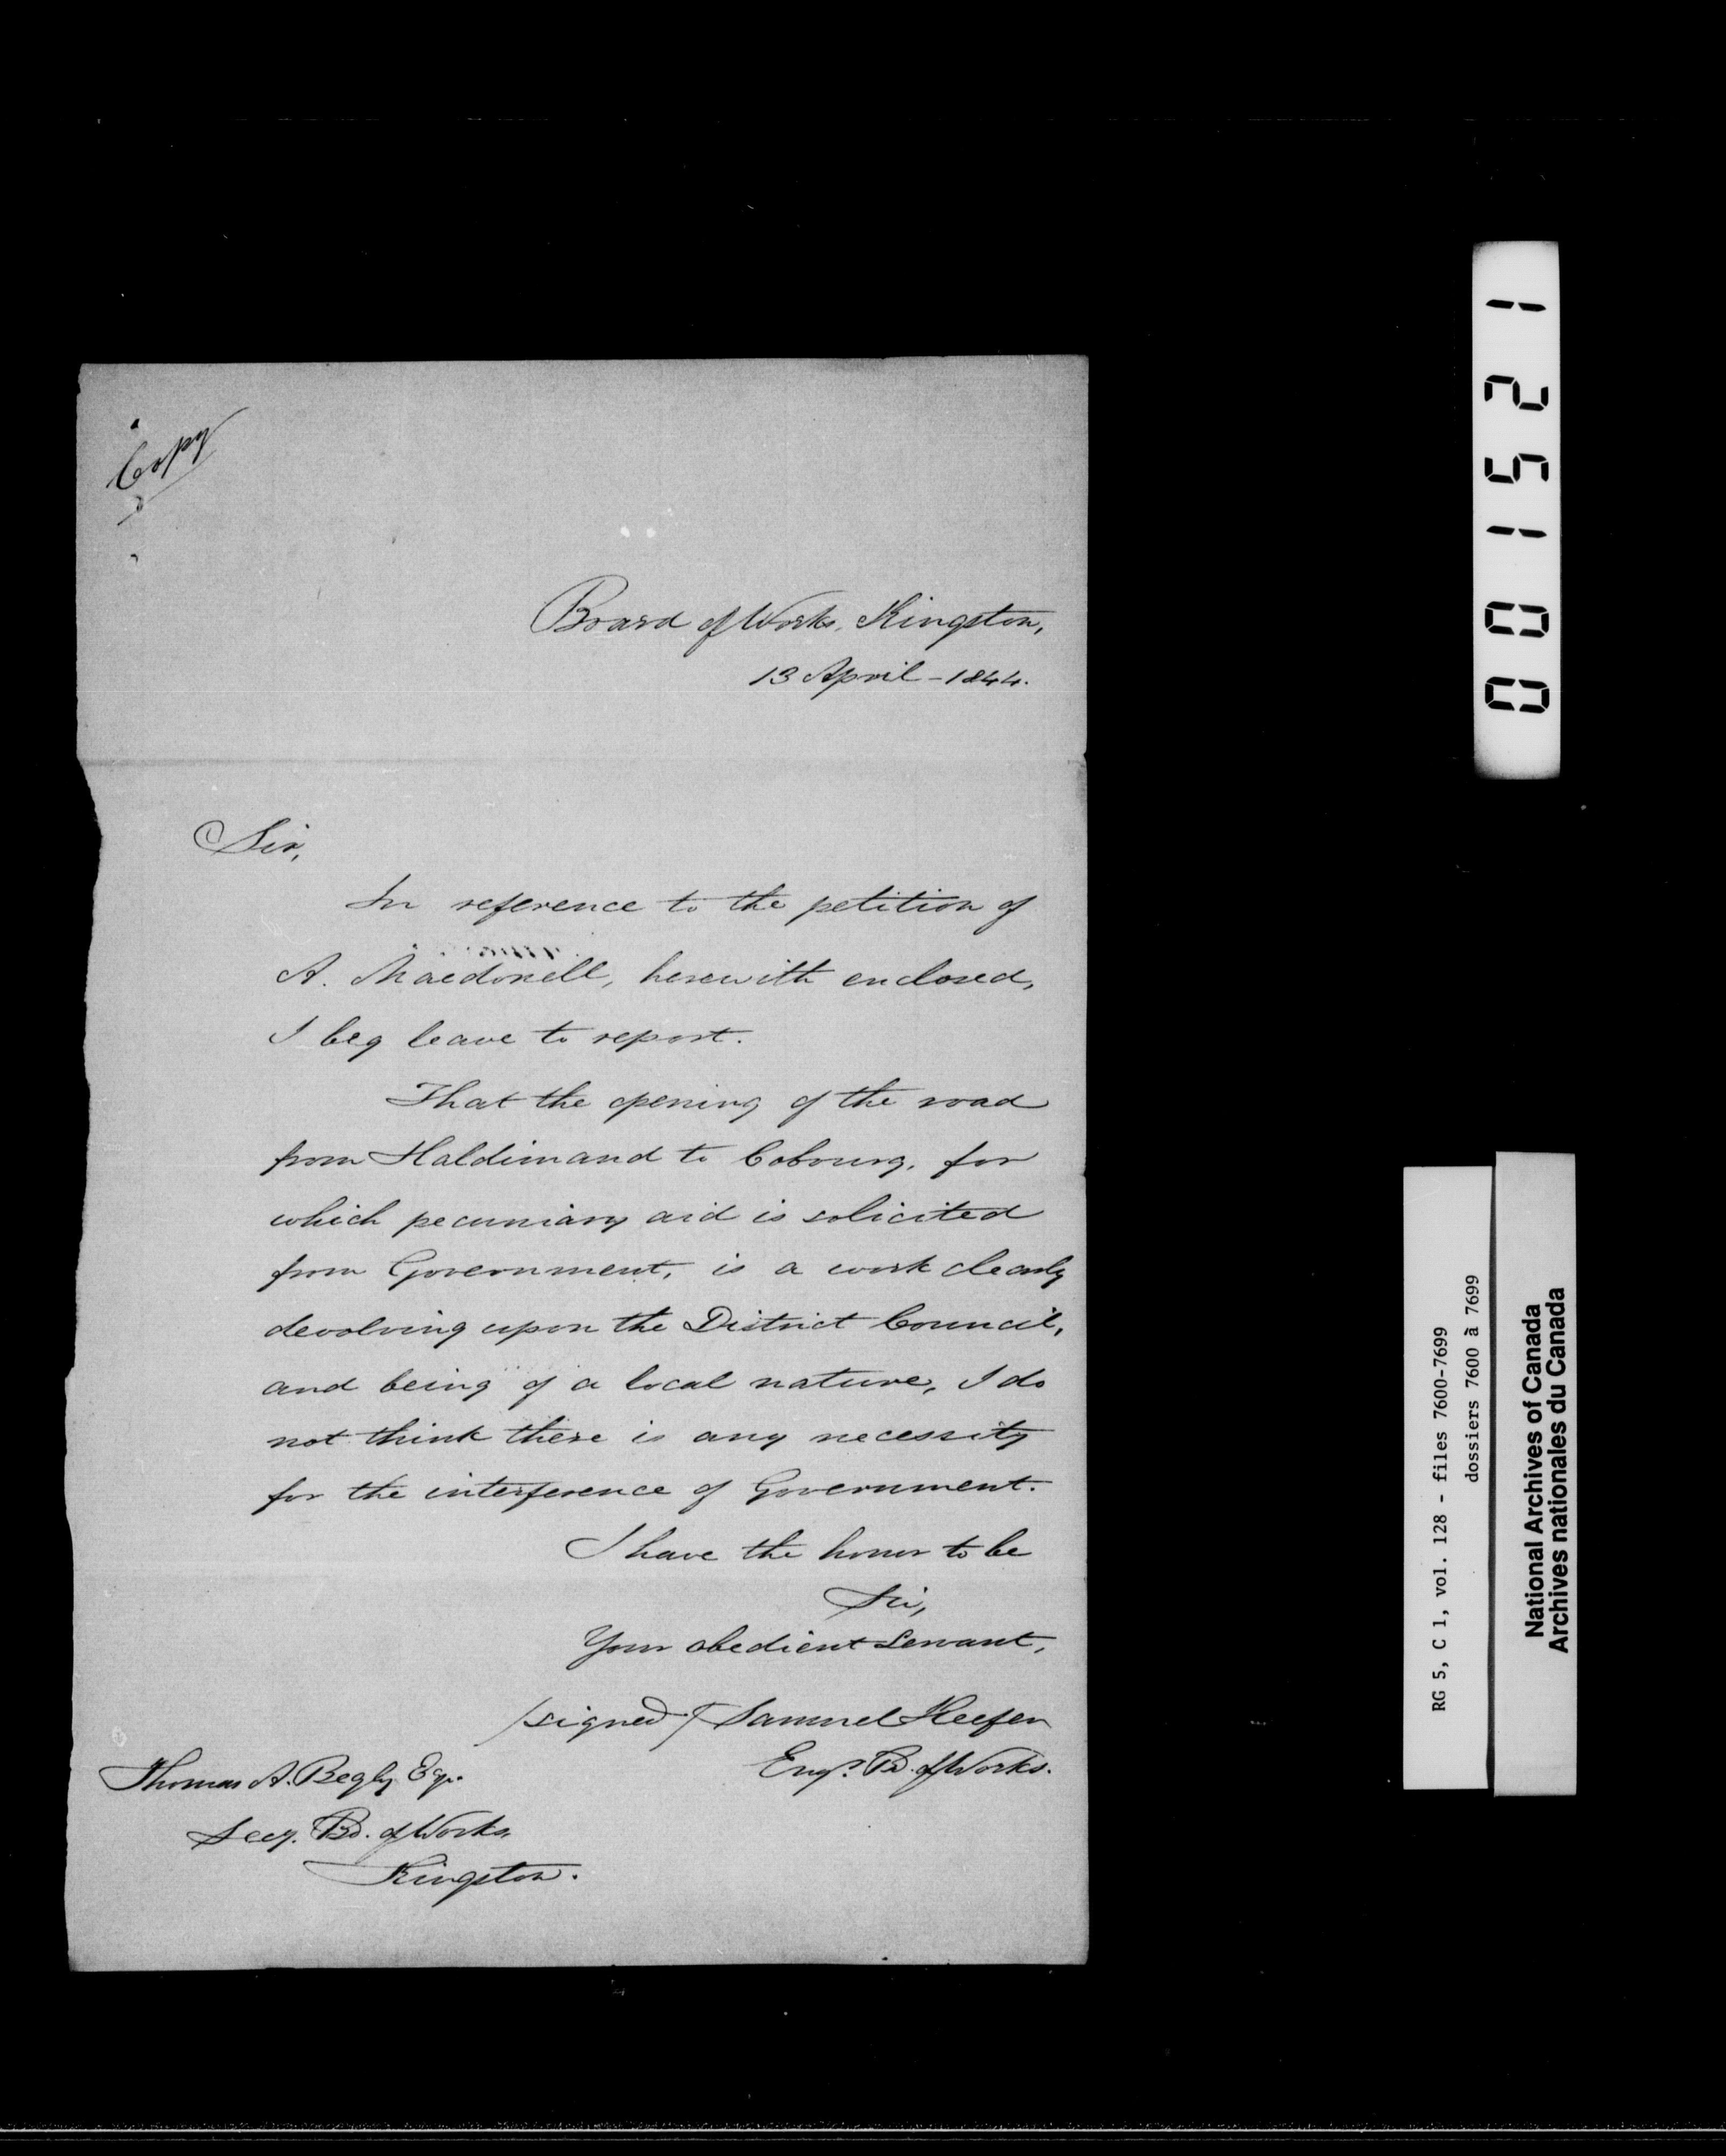 Copy
Board of Works, Kingston,
13 April - 1844.
Sir,
In reference to the petition of
A. Macdonell, herewith enclosed,
I beg leave to report.
That the opening of the road
from Haldimand to Cobourg, for
which pecuniary aid is solicited
from Government, is a work clearly
devolving upon the District Council,
and being of a local nature, I do
not think there is any necessity
for the interference of Government.
I have the honor to be
Sir,
Your obedient Servant,
/signed/ Samuel Keefer
Engr. Bd. of Works.
Thomas A. Begly Esqr.
Secy. Bd. of Works,
Kingston.
001521
RG 5, C 1, vol. 128 - files 7600-7699
dossiers 7600 à 7699
National Archives of Canada
Archives nationales du Canada